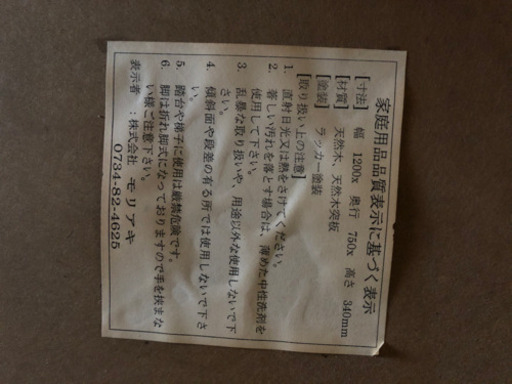 家庭用品品質表示に基づく表示
[寸法] 幅 1200x 奥行 750x 高さ 340mm
[材質] 天然木、天然木突板
[塗装] ラッカー塗装
[取り扱い上の注意]
1. 直射日光又は熱をさけてください。
2. 著しい汚れを落とす場合は、薄めた中性洗剤を
使用して下さい。
3. 乱暴な取り扱いや、用途以外な使用しないで下
さい。
4. 傾斜面や段差の有る所では使用しないで下さ
い。
5. 踏台や梯子に使用は厳禁危険です。
6. 脚は折れ脚式になっておりますので手を挟まな
い様ご注意下さい。
表示者 : 株式会社 モリアキ
0734-82-4625